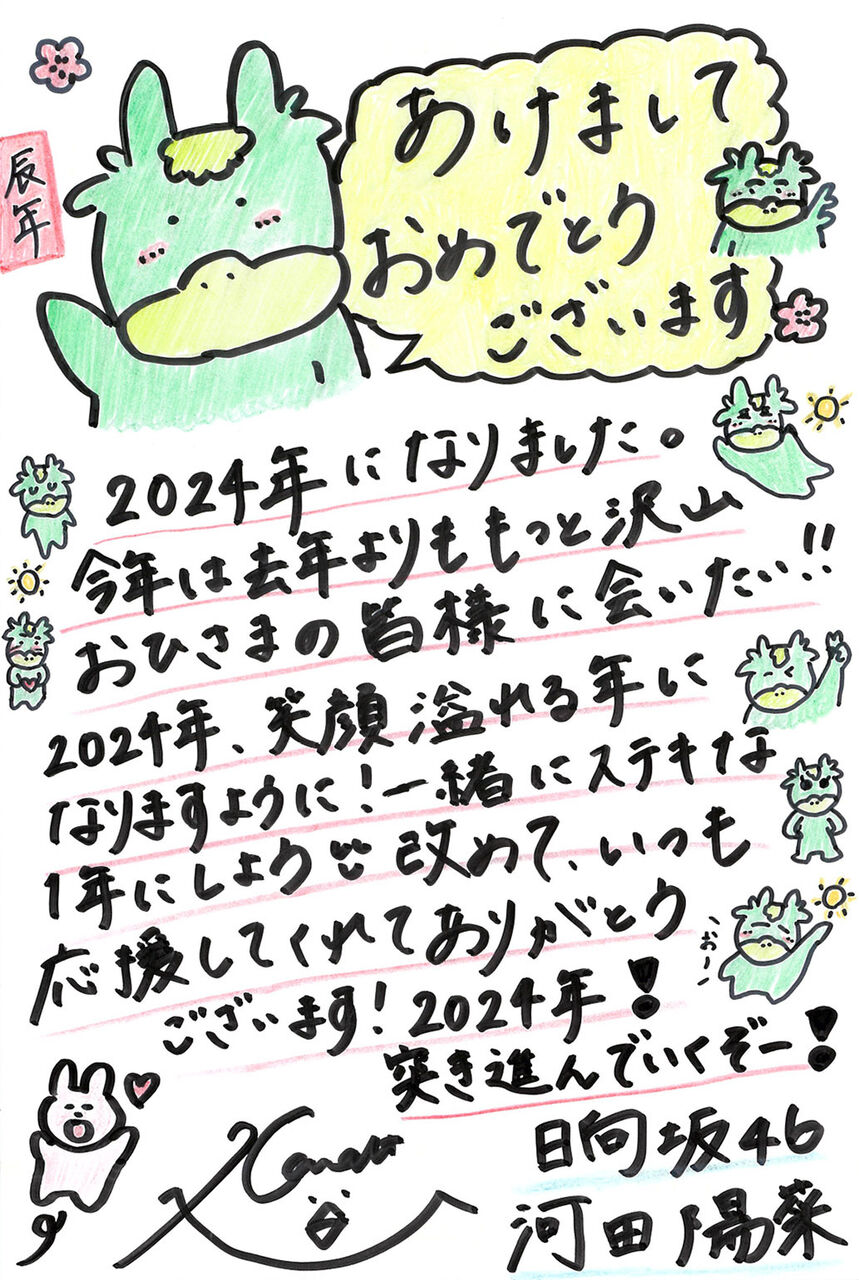 辰年
あけまして
おめでとう
ございます
2024年になりました。
今年は去年よりももっと沢山
おひさまの皆様に会いたい!!
2024年、笑顔溢れる年に
なりますように!一緒にステキな
1年にしよう 改めて、いつも
応援してくれてありがとう
ございます!2024年!
突き進んでいくぞー!
おー
日向坂46
河田陽菜